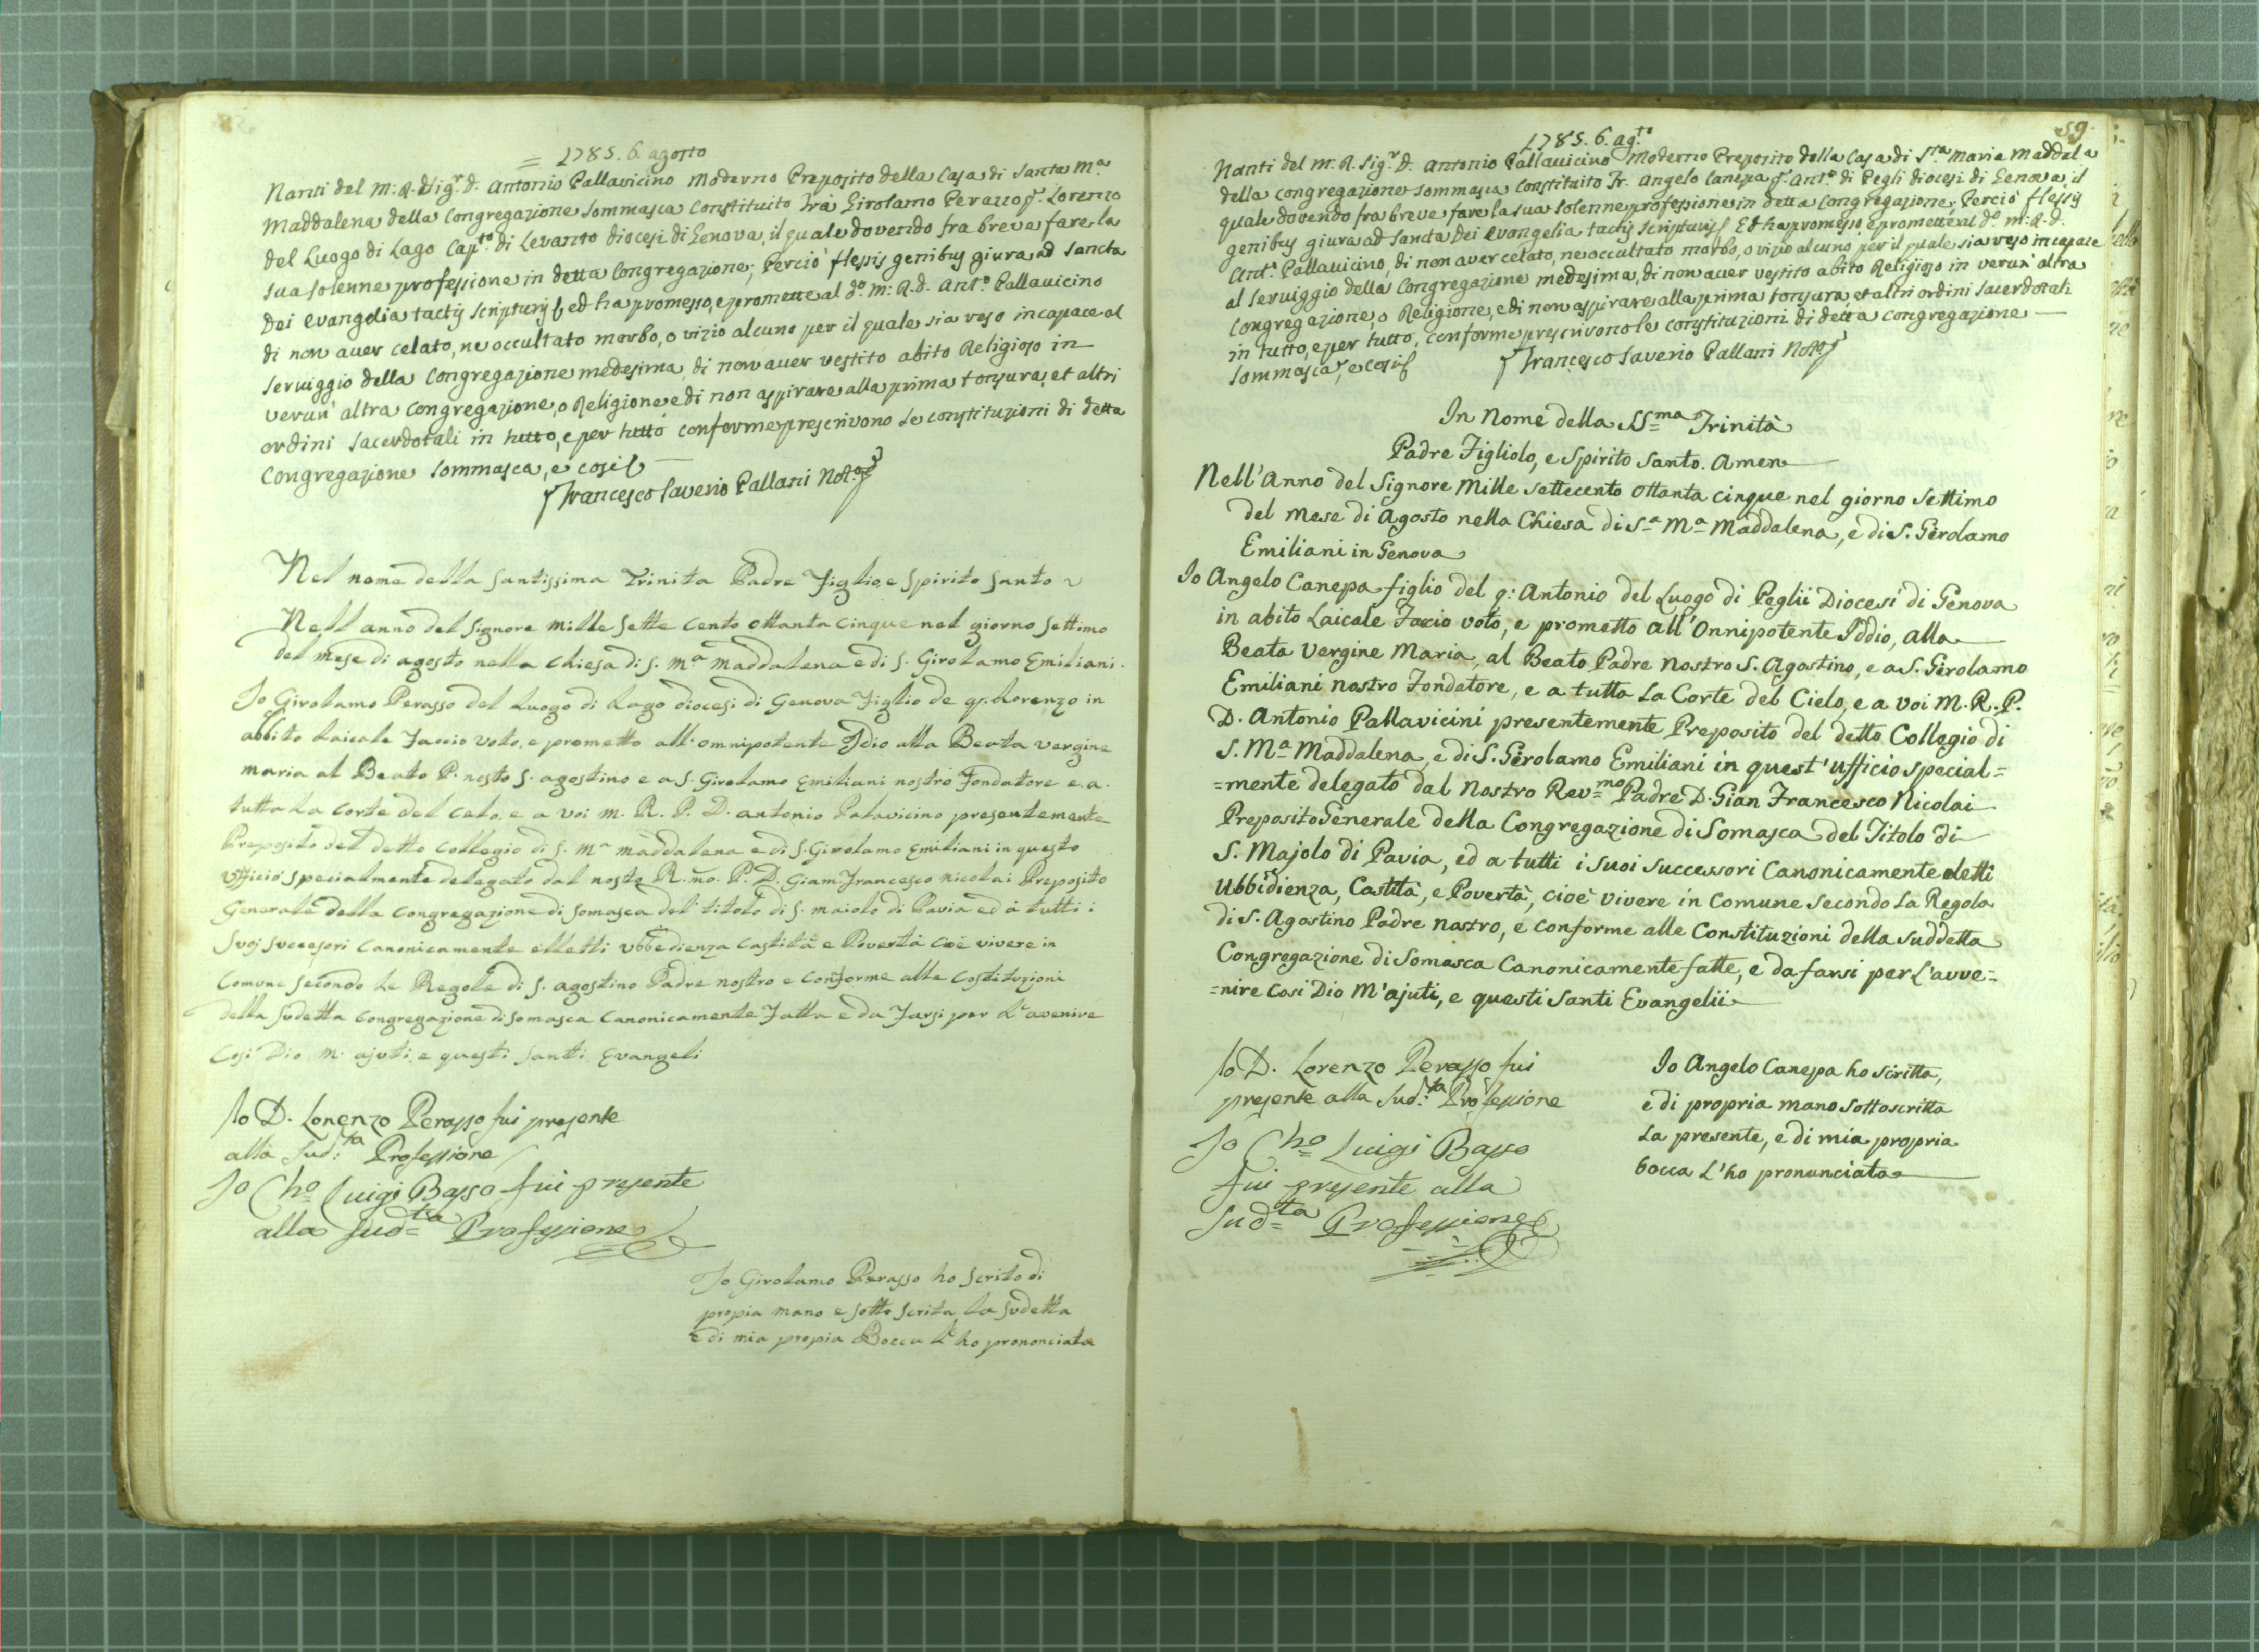 = 1785. 6. agosto
Nanti del M: R. Sig.r D. Antonio Pallavicino Moderno Preposito della Casa di Santa M.a
Maddalena della Congregazione Sommasca Constituito Fra Girolamo Perazzo q. Lorenzo
del Luogo di Lago Cap.to di Levanto diocesi di Genova, il quale dovendo fra breve fare la
sua solenne professione in detta Congregazione; Perciò flessis genibus giura ad Sancta
Dei Evangelia tactis scripturis ed ha promesso, e promette al d.o M: R. D. Ant.o Pallavicino
di non aver celato, ne occultato morbo, o vizio alcuno per il quale sia reso incapace al
Serviggio della Congregazione medesima, di non aver vestito abito Religioso in
verun' altra Congregazione, o Religione e di non aspirare alla prima tonsura, et altri
ordini Sacerdotali in tutto, e per tutto conforme prescrivono le constituzioni di detta
Congregazione Sommasca, e così
Francesco Saverio Pallani Not.o
Nel nome della Santissima Trinita Padre Figlio, e Spirito Santo
Nell anno del Signore mille Sette Cento ottanta cinque nel giorno Settimo
del mese di agosto nella Chiesa di S. M.a Maddalena e di S. Girolamo Emiliani.
Io Girolamo Perasso del Luogo di Lago diocesi di Genova Figlio de q. Lorenzo in
abbito Laicale Faccio voto, e prometto all' omnipotente Idio alla Beata vergine
maria al Beato P. nosto S. agostino e a S. Girolamo Emiliani nostro Fondatore e. a.
tutta La Corte del Celo, e a voi M. R. P. D. antonio Palavicino presentemente
Preposito del detto Collegio di S. M.a maddalena e di S. Girolamo Emiliani in questo
Ufficio specialmente delegato dal nostro R.mo. P. D. Giam Francesco nicolai Preposito
Generale della Congregazione di Somasca del titolo di S. maiolo di Pavia ed à tutti i
Suoi Successori Canonicamente elletti ubbedienza Castità e Povertà cioè vivere in
Comune secondo Le Regole di S. agostino Padre nostro e conforme alle Costituzioni
della Sudetta Congregazione di Somasca Canonicamente Fatta e da Farsi per L'avenire
Cosi Dio m' ajuti, e questi Santi Evangeli
Io D. Lorenzo Perasso fui presente
alla Sud:ta Professione
Io Cho Luigi Basso fui presente
alla Sud=ta Professione
Io Girolamo Perasso ho Scrito di
propia mano e sotto scrita La Sudetta
e di mia propia Bocca L'ho prononciata
59.
1785. 6. ag.to
Nanti del M: R. Sig.r D. Antonio Pallavicino Moderno Preposito della Casa di S.ta Maria Maddal.a
della Congregazione Sommasca Constituito Fr. Angelo Canepa q. Ant.o di Pegli diocesi di Genova, il
quale dovendo fra breve fare la sua solenne professione in detta Congregazione; Perciò flessis
genibus giura ad Sancta Dei Evangelia tactis scripturis Ed ha promesso, e promette al d.o M: R. D.
Ant.o Pallavicino, di non aver celato, ne occultato morbo, o vizio alcuno per il quale sia reso incapace
al Serviggio della Congregazione medesima, di non aver vestito abito Religioso in verun' altra
Congregazione, o Religione, e di non aspirare alla prima tonsura, et altri ordini Sacerdotali
in tutto, e per tutto, conforme prescrivono le constituzioni di detta Congregazione
Sommasca, e così Francesco Saverio Pallani Not.o
In Nome della SS=ma Trinità
Padre Figliolo, e Spirito Santo. Amen
Nell'Anno del Signore Mille Settecento Ottanta cinque nel giorno Settimo
del Mese di Agosto nella Chiesa di S.a M.a Maddalena, e di S. Gerolamo
Emiliani in Genova
Io Angelo Canepa figlio del q: Antonio del Luogo di Peglii Diocesi di Genova
in abito Laicale Faccio voto, e prometto all'Onnipotente Iddio, alla
Beata Vergine Maria, al Beato Padre Nostro S. Agostino, e a S. Gerolamo
Emiliani nostro Fondatore, e a tutta La Corte del Cielo, e a voi M. R. P.
D. Antonio Pallavicini presentemente Preposito del detto Collegio di
S. M.a Maddalena, e di S. Gerolamo Emiliani in quest'ufficio special=
=mente delegato dal Nostro Rev=mo Padre D. Gian Francesco Nicolai
Preposito Generale della Congregazione di Somasca del Titolo di
S. Majolo di Pavia, ed a tutti i suoi successori Canonicamente eletti
Ubbidienza, Castità, e Povertà, cioè vivere in Comune Secondo La Regola
di S. Agostino Padre nostro, e conforme alle Constituzioni della Suddetta
Congregazione di Somasca Canonicamente fatte, e da farsi per L'avve=
=nire Cosi Dio M'ajuti, e questi Santi Evangelii
Io D. Lorenzo Perasso fui
presente alla Sud:ta Professione
Io Cho Luigi Basso
fui presente alla
Sud=ta Professione
Io Angelo Canepa ho scritta,
e di propria mano sottoscritta
La presente, e di mia propria
bocca L'ho pronunciata